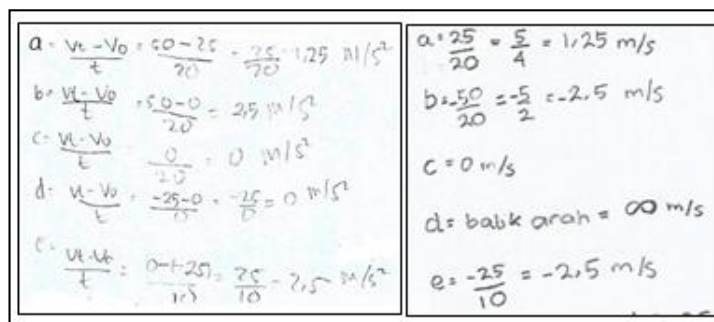 a = Vt - Vo / t = 50 - 25 / 20 = 25 / 20 = 1,25 m/s²
b = Vt - Vo / t = 50 - 0 / 20 = 2,5 m/s²
c = Vt - Vo / t = 0 / 20 = 0 m/s²
d = Vt - Vo / t = -25 - 0 / 0 = -25 / 0 = 0 m/s²
e = / t = 0 - (-25) / 10 = 25 / 10 = 2,5 m/s²
a = 25 / 20 = 5 / 4 = 1,25 m/s
b = -50 / 20 = -5 / 2 = -2,5 m/s
c = 0 m/s
d = balik arah = ∞ m/s
e = -25 / 10 = -2,5 m/s